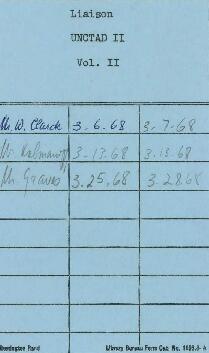 Liaison
UNCTAD II
Vol. II
Mr. W. Clark 3-6.68 3-7-68
Mr. Kalmanoff 3-13.68 3-13-68
Mr Graves 3.25.68 3-28.68
Remington Rand Library Bureau Form Cat. No. 1169.3-A